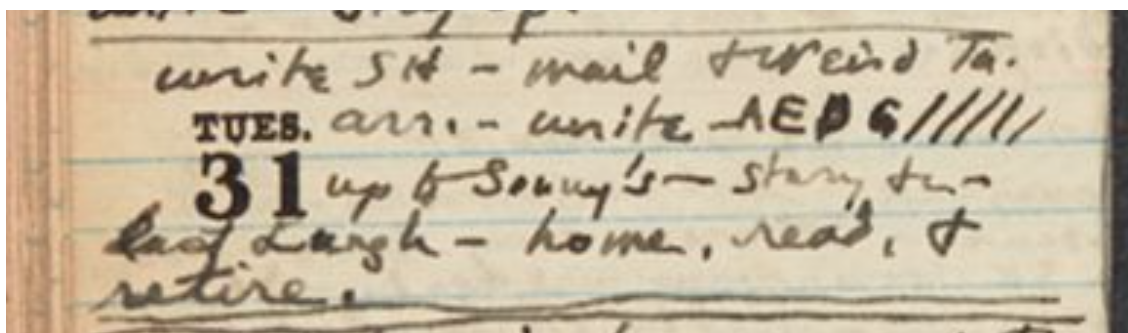 write SH - mail & Weird Ta.
TUES. arr. - write AEPG/////
31 up to Sonny's - story
Laugh - home, read, &
retire.